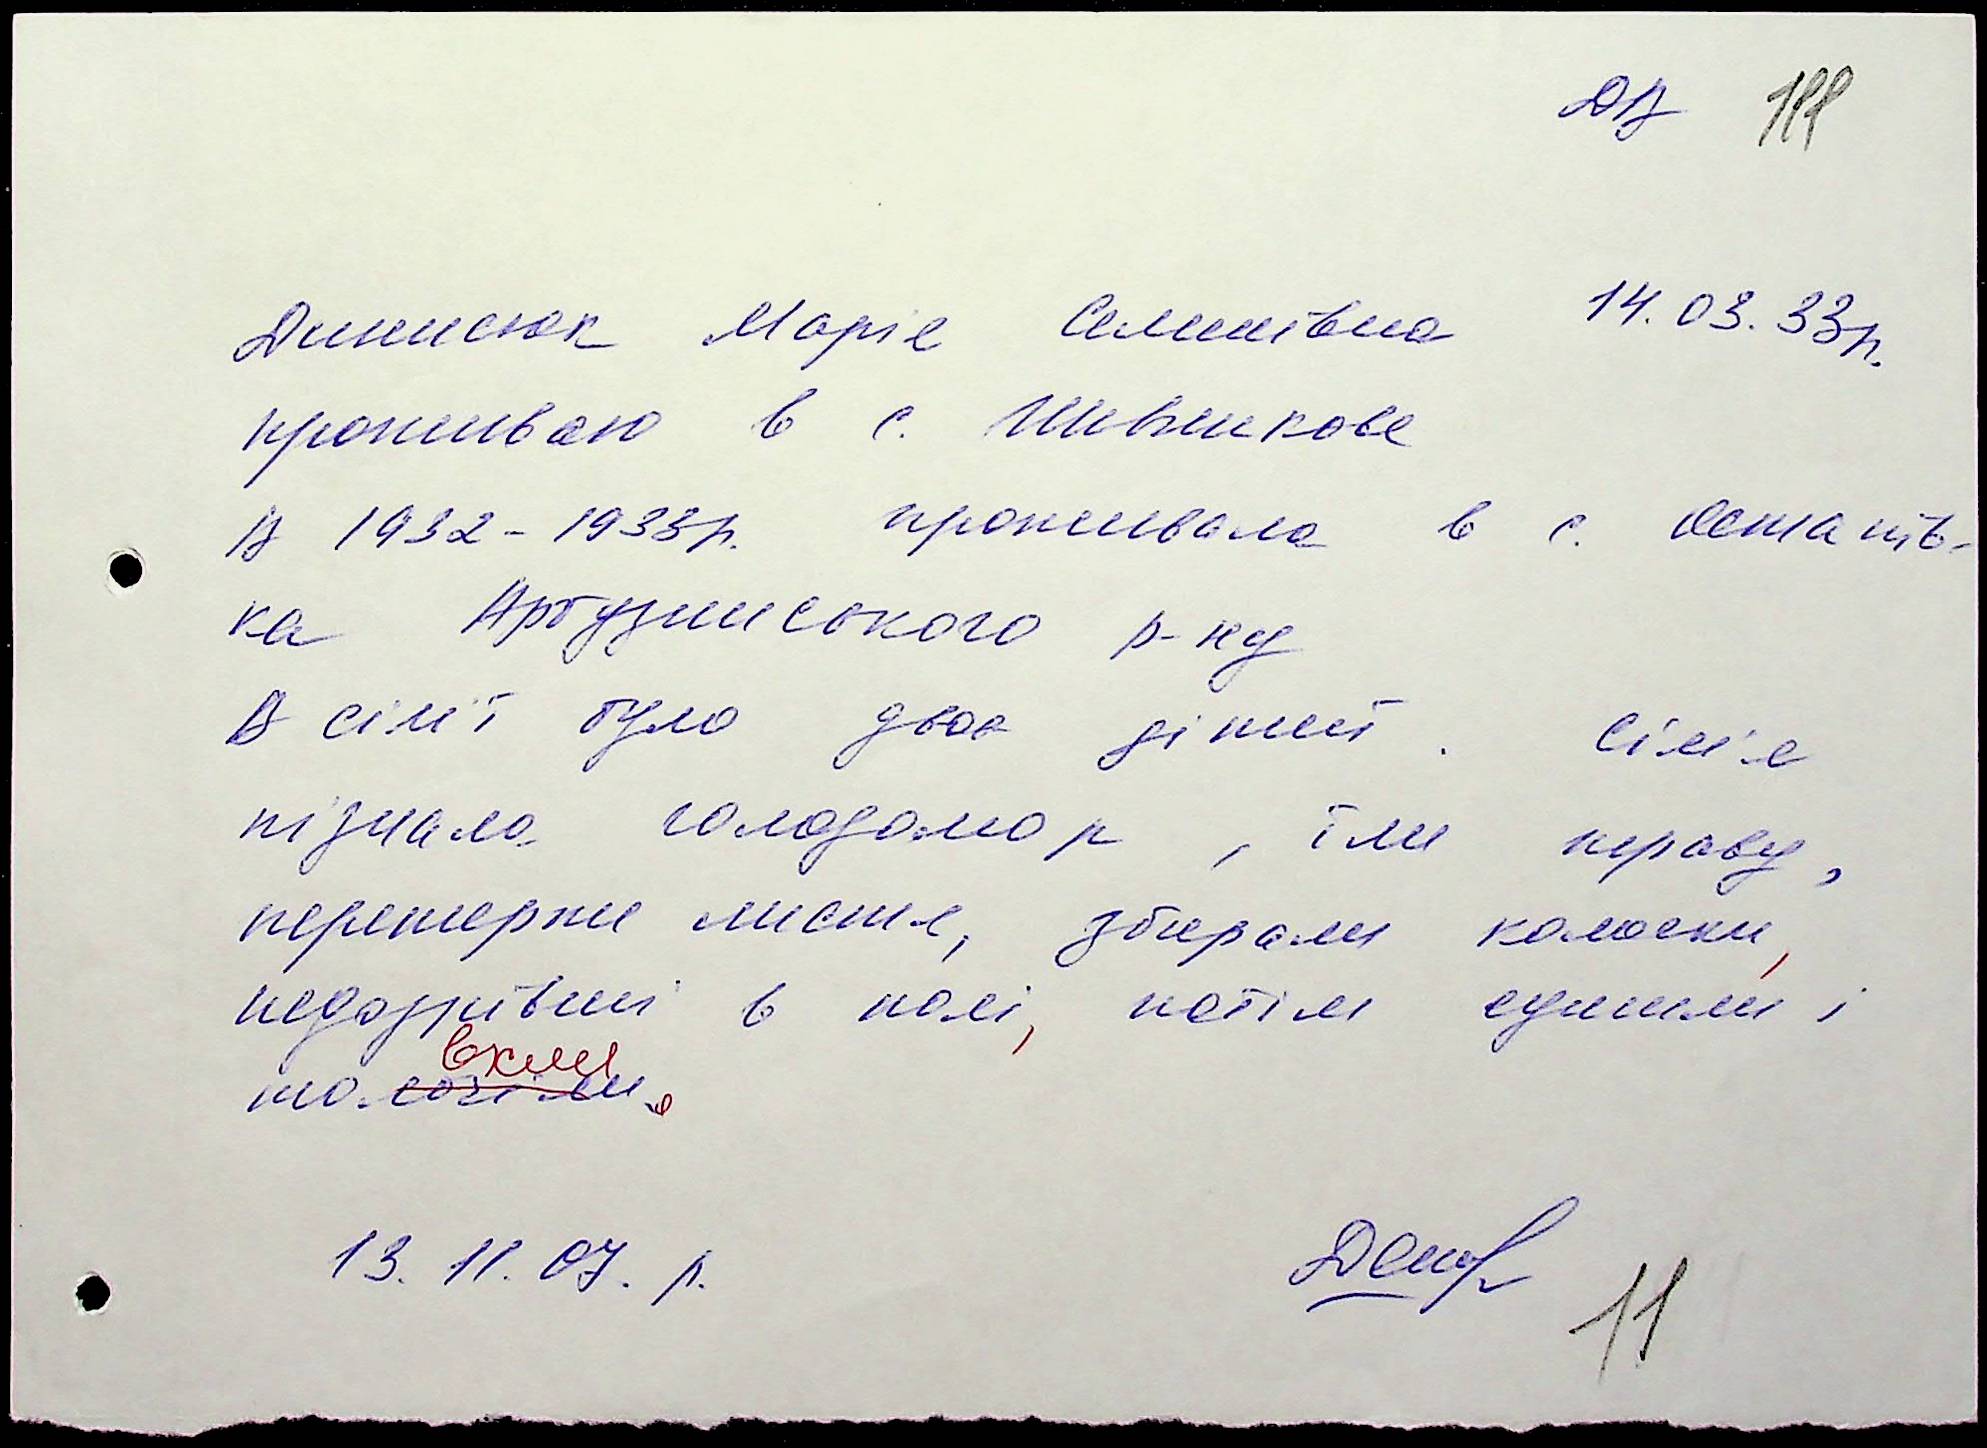 ДВ 188
Динисюк Марія Семенівна 14.03.33р.
проживаю в с. Шевченкове
В 1932-1933р. проживала в с. Остапів-
ка Арбузинського р-ну
В сім'ї було двоє дітей. Сім'я
пізнала голодомор, їли траву,
перетерте листя, збирали колоски,
недозрівші в полі, потім сушили і
вкли
толочили.
13.11.07.р.
11